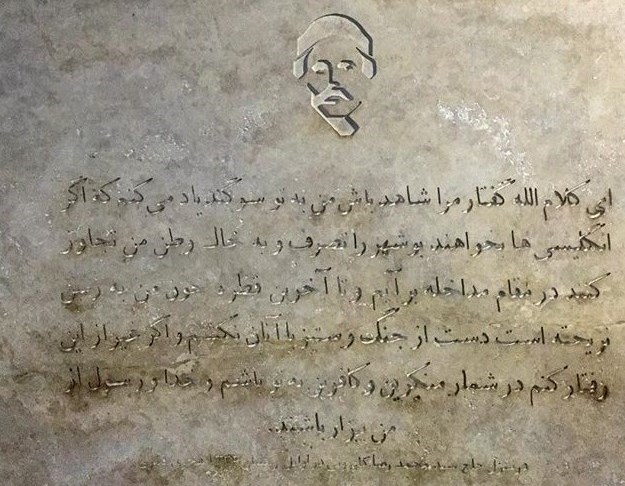 ای کلام الله گفتار مرا شاهد باش من به تو سوگند یاد می کنم که اگر
انگلیسی ها بخواهند بوشهر را تصرف و به خاک وطن من تجاوز
کنند در مقام مدافعه برآیم و تا آخرین قطره خون من به زمین
نریخته است دست از جنگ و ستیز با آنان نکشم و اگر غیر از این
رفتار کنم در شمار منکرین و کافرین به تو باشم و خدا و رسول از
من بیزار باشند..
در منزل حاج سید محمد رضا کازرونی در اوایل